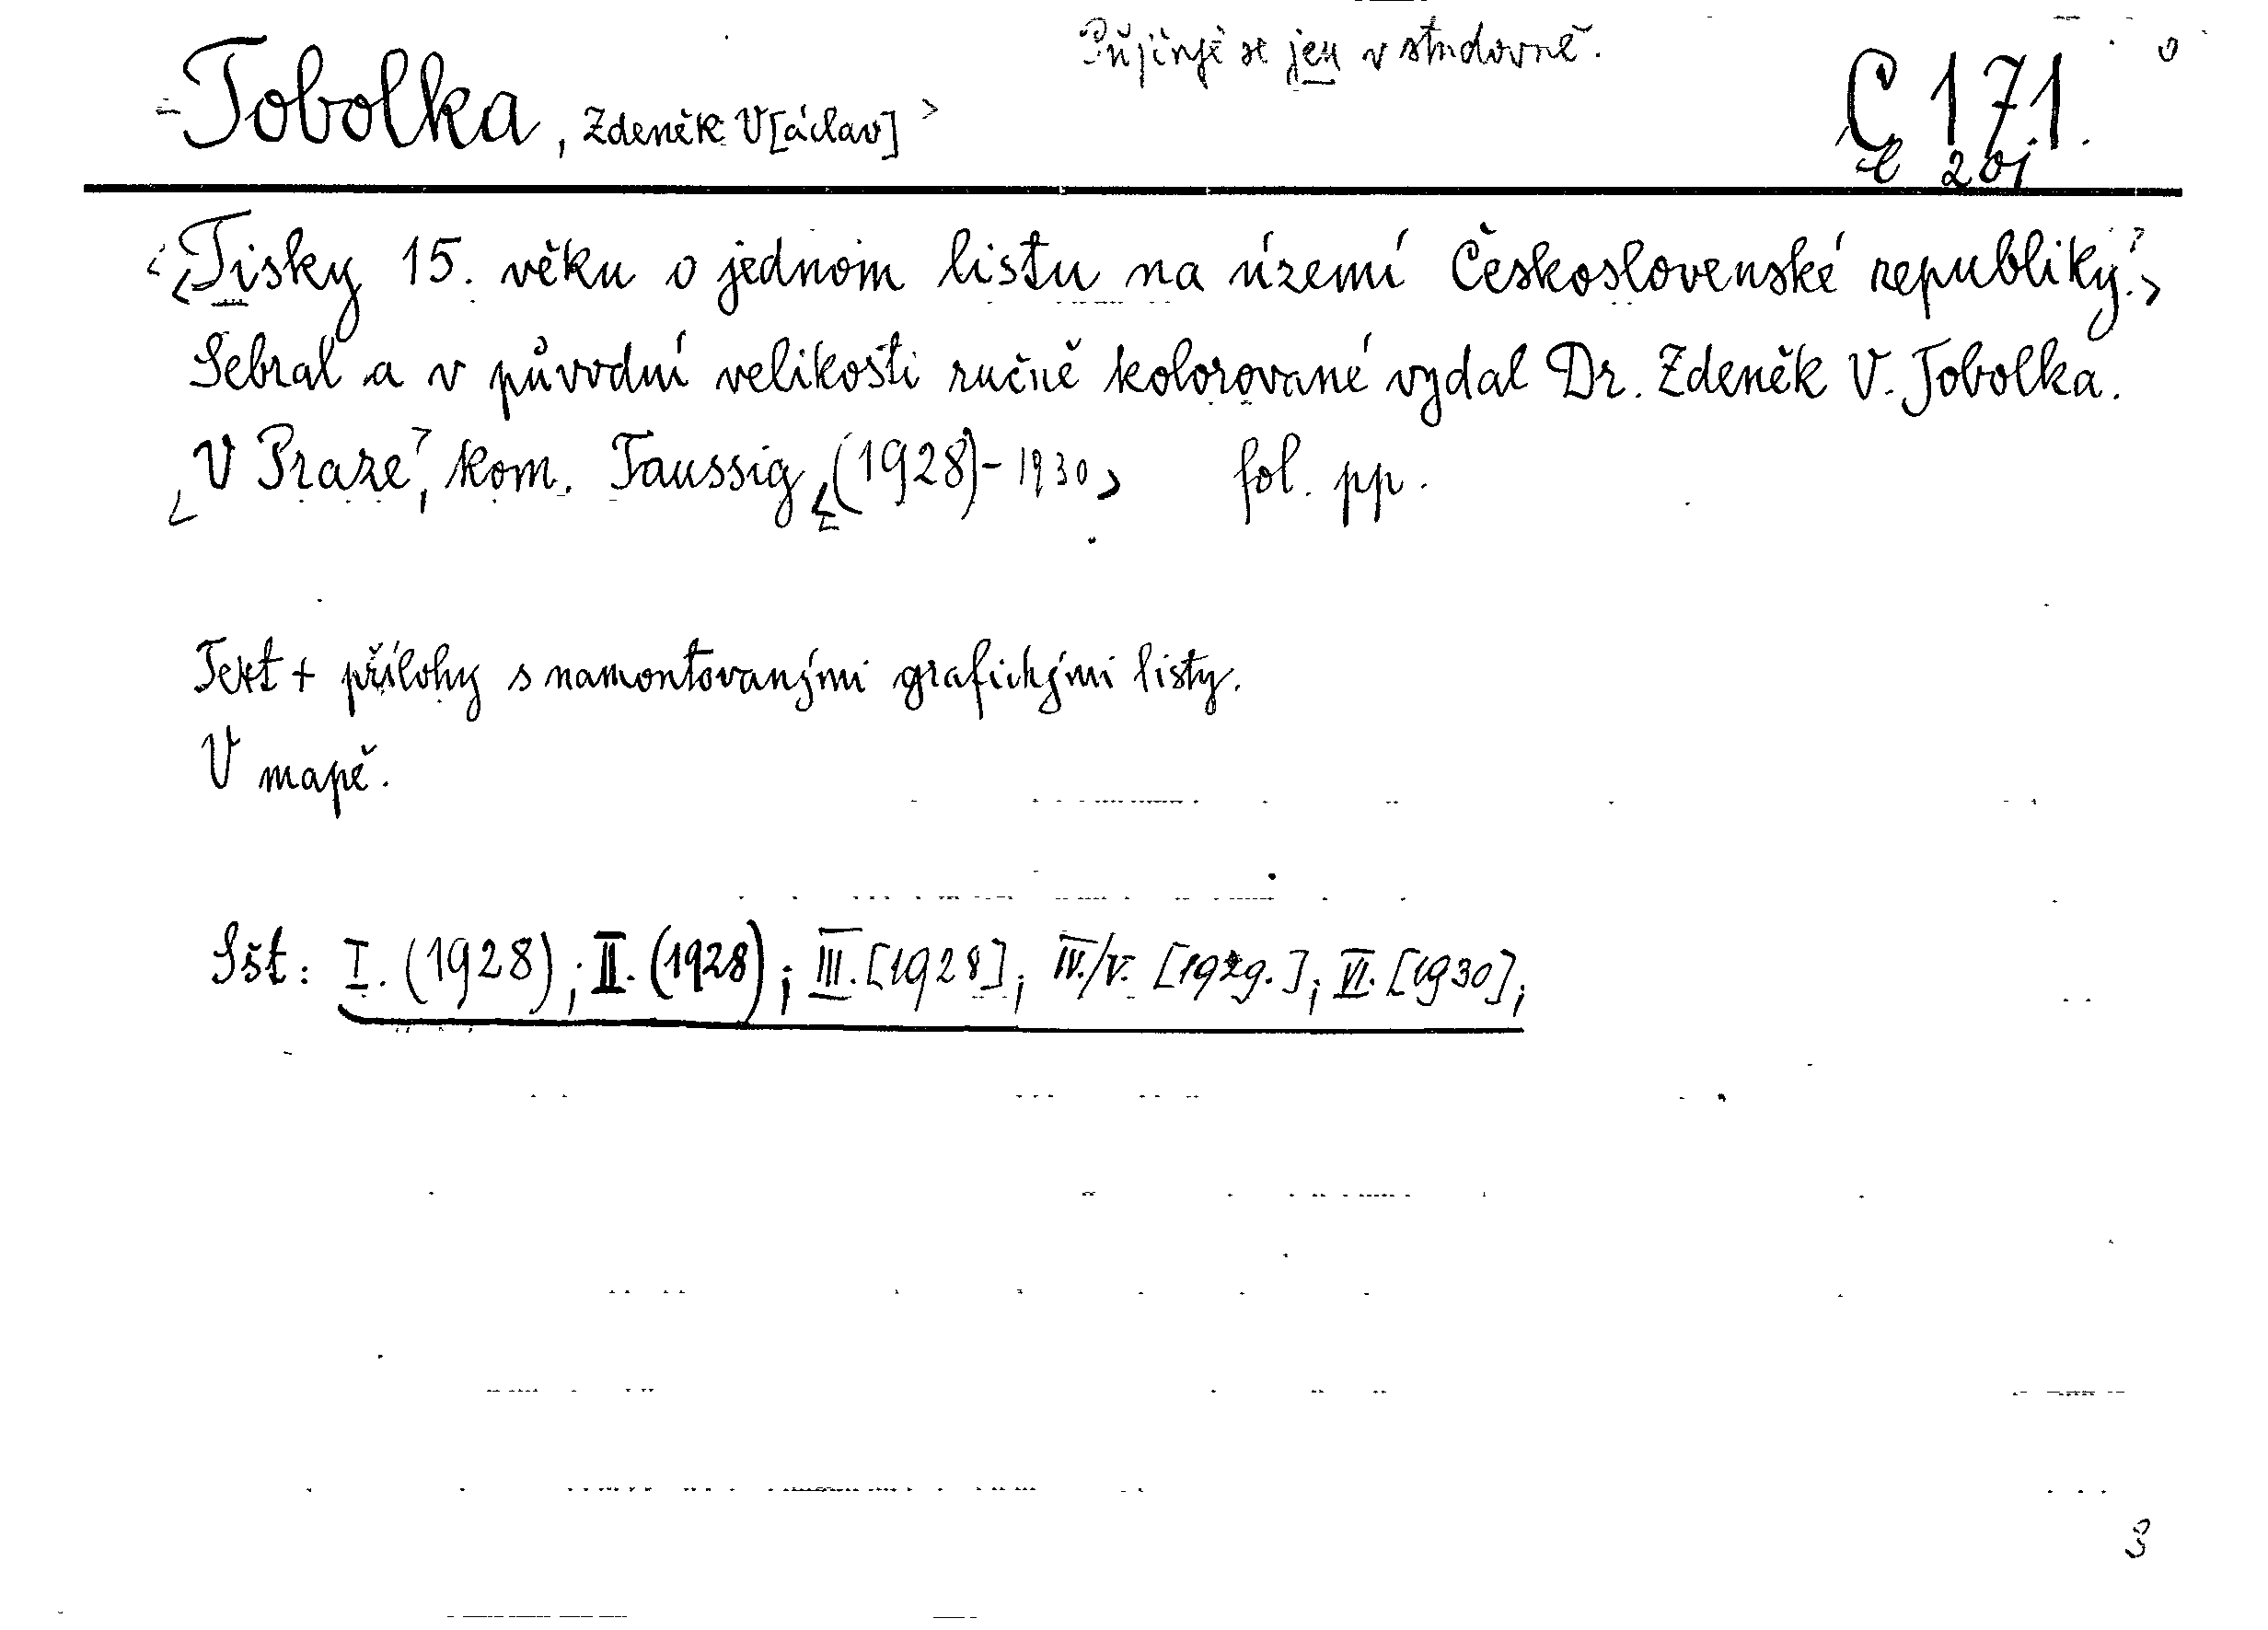 Půjčuje se jen v studovně.
Tobolka, Zdeněk V[áclav] >
C 171.
<Tisky 15. věku o jednom listu na území Československé republiky.>
Sebral a v původní velikosti ručně kolorované vydal Dr. Zdeněk V. Tobolka.
V Praze, kom. Taussig <(1928)-1930> fol. pp.
Text + přílohy s namontovanými grafickými listy.
V mapě.
Sšt: I. (1928); II. (1928); III. [1928]; IV./V. [1929.]; VI. [1930];
3